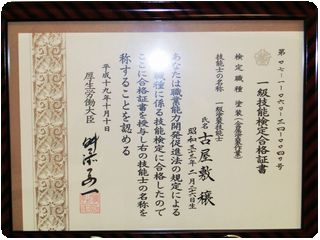 第07-1-060-34-0004号
一級技能検定合格証書
検定職種 塗装(金属塗装作業)
技能士の名称 一級塗装技能士
氏名 古屋敷 穣
昭和五十三年二月二十六日生
あなたは職業能力開発促進法の規定による
検定職種に係る技能検定に合格したので
ここに合格証書を授与し右の技能士の名称を
称することを認める
平成十九年十月十日
厚生労働大臣